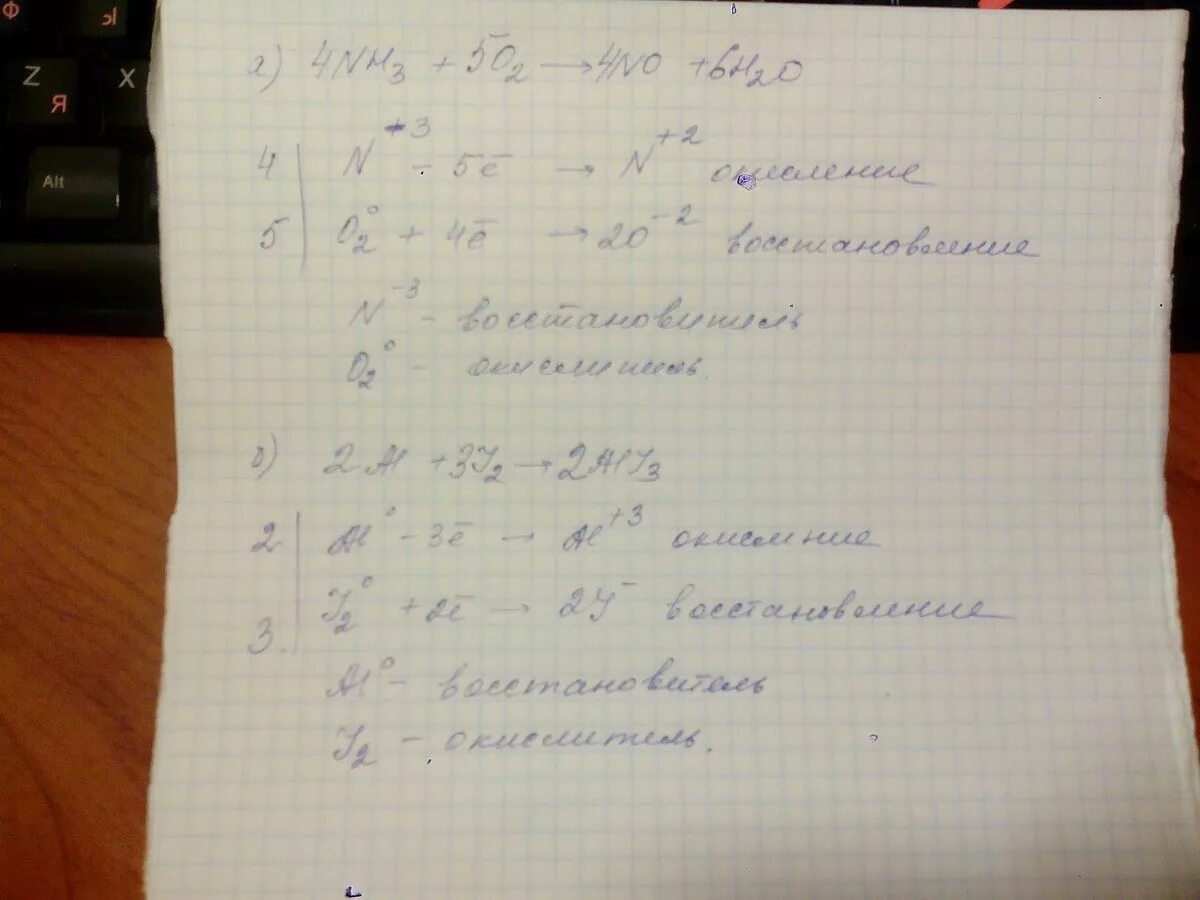 Ф
Ы
Z
Я
X
Alt
а) 4NH₃ + 5O₂ → 4NO + 6H₂O
4 | N⁻³ - 5ē → N⁺² окисление
5 | O₂⁰ + 4ē → 2O⁻² восстановление
N⁻³ - восстановитель
O₂⁰ - окислитель.
б) 2Al + 3J₂ → 2AlJ₃
2 | Al⁰ - 3ē → Al⁺³ окисление
3. | J₂⁰ + 2ē → 2J⁻ восстановление
Al⁰ - восстановитель
J₂ - окислитель.